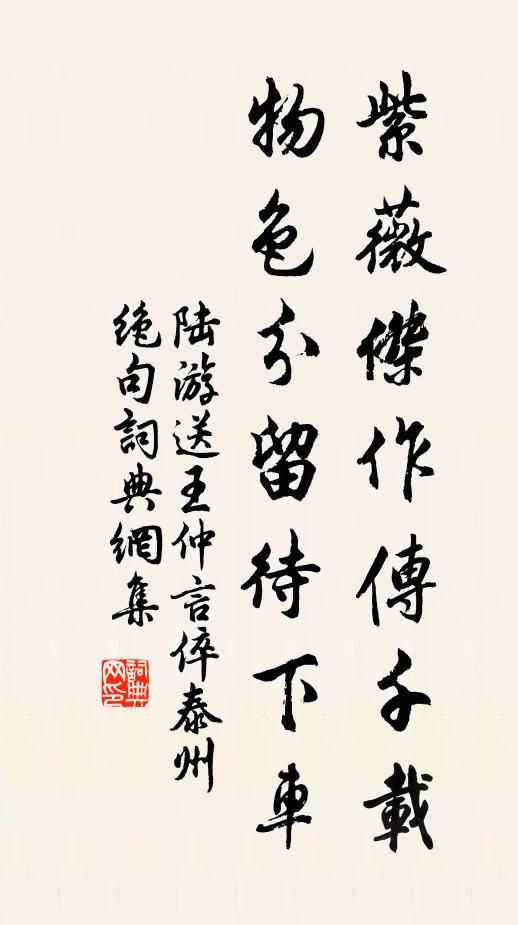 紫薇傑作傳千載
物色分留待下車
陆游送王仲言倅泰州
绝句詞典網集
詞典网印